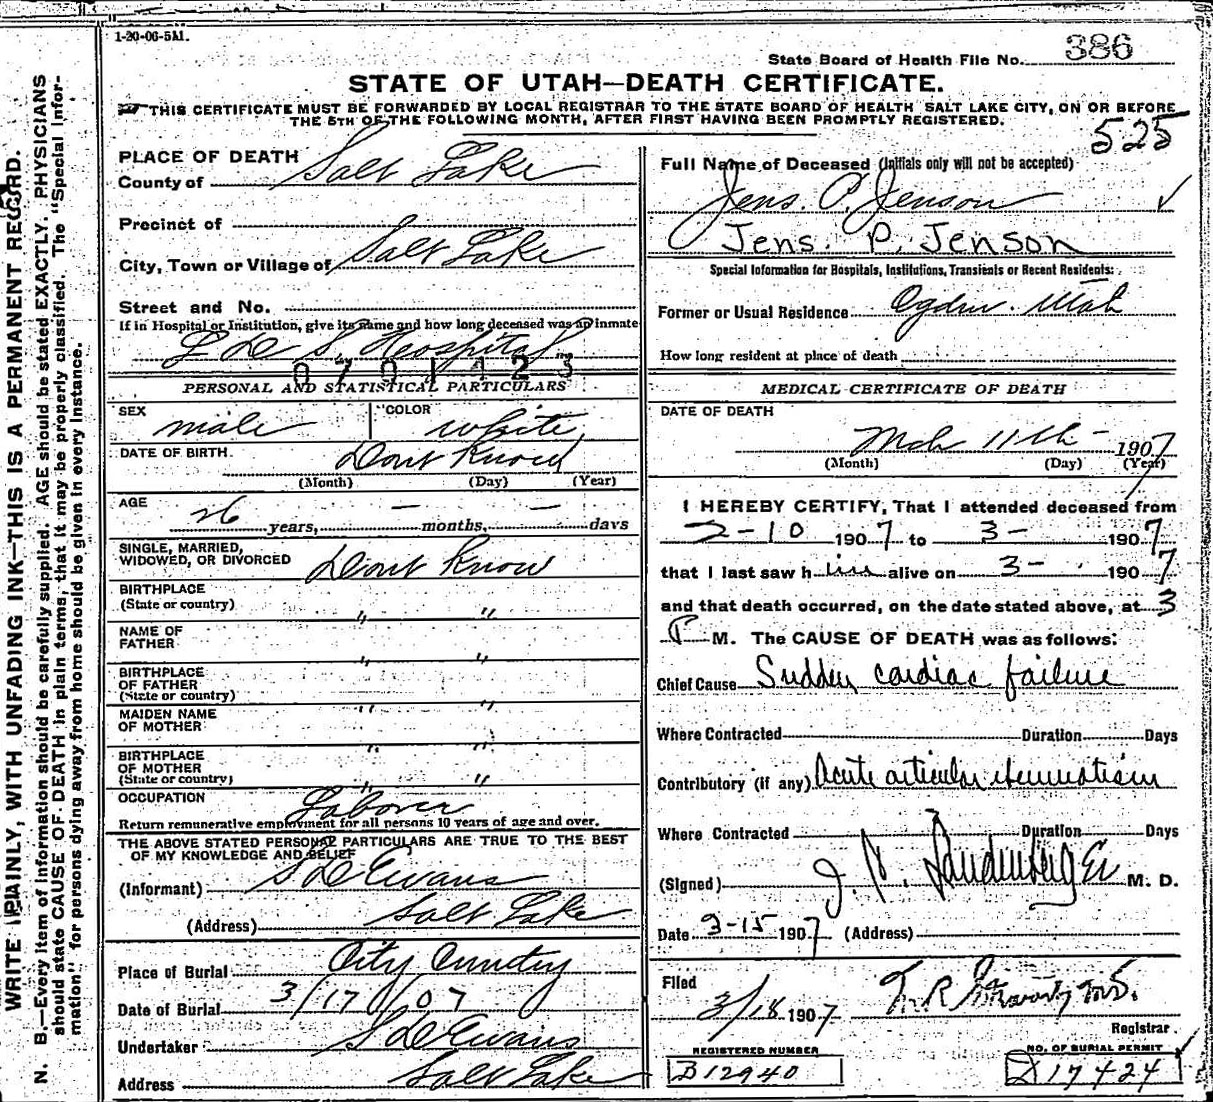 1-20-06-5M.
State Board of Health File No. 386
STATE OF UTAH—DEATH CERTIFICATE.
THIS CERTIFICATE MUST BE FORWARDED BY LOCAL REGISTRAR TO THE STATE BOARD OF HEALTH SALT LAKE CITY, ON OR BEFORE
THE 5TH OF THE FOLLOWING MONTH, AFTER FIRST HAVING BEEN PROMPTLY REGISTERED.
525
WRITE PLAINLY, WITH UNFADING INK—THIS IS A PERMANENT RECORD.
N. B.—Every item of information should be carefully supplied. AGE should be stated EXACTLY. PHYSICIANS
should state CAUSE OF DEATH in plain terms, that it may be properly classified. The "Special Infor-
mation" for persons dying away from home should be given in every instance.
PLACE OF DEATH
County of Salt Lake
Precinct of
City, Town or Village of Salt Lake
Street and No.
If in Hospital or Institution, give its name and how long deceased was an inmate
L D S Hospital
PERSONAL AND STATISTICAL PARTICULARS
SEX male COLOR white
DATE OF BIRTH. Dont Know
(Month) (Day) (Year)
AGE 26 years, — months, — days
SINGLE, MARRIED,
WIDOWED, OR DIVORCED Dont Know
BIRTHPLACE
(State or country) " "
NAME OF
FATHER " "
BIRTHPLACE
OF FATHER
(State or country) " "
MAIDEN NAME
OF MOTHER " "
BIRTHPLACE
OF MOTHER
(State or country) " "
OCCUPATION Laborer
Return remunerative employment for all persons 10 years of age and over.
THE ABOVE STATED PERSONAL PARTICULARS ARE TRUE TO THE BEST
OF MY KNOWLEDGE AND BELIEF
(Informant) S D Evans
(Address) Salt Lake
Place of Burial City Cemetery
Date of Burial 3/17/07
Undertaker S D Evans
Address Salt Lake
Full Name of Deceased (Initials only will not be accepted)
Jens. P. Jenson
Jens. P. Jenson
Special Information for Hospitals, Institutions, Transients or Recent Residents:
Former or Usual Residence Ogden. Utah
How long resident at place of death
MEDICAL CERTIFICATE OF DEATH
DATE OF DEATH
Mch 11th - 1907
(Month) (Day) (Year)
I HEREBY CERTIFY, That I attended deceased from
2-10 1907 to 3- 1907
that I last saw h im alive on 3- 1907
and that death occurred, on the date stated above, at 3
P M. The CAUSE OF DEATH was as follows:
Chief Cause Sudden cardiac failure
Where Contracted Duration Days
Contributory (if any) Acute articular rheumatism
Where Contracted Duration Days
(Signed) J. C. Landenberger M. D.
Date 3-15 1907 (Address)
Filed
3/18 1907
Registrar.
REGISTERED NUMBER
D12940
NO. OF BURIAL PERMIT
D 17424